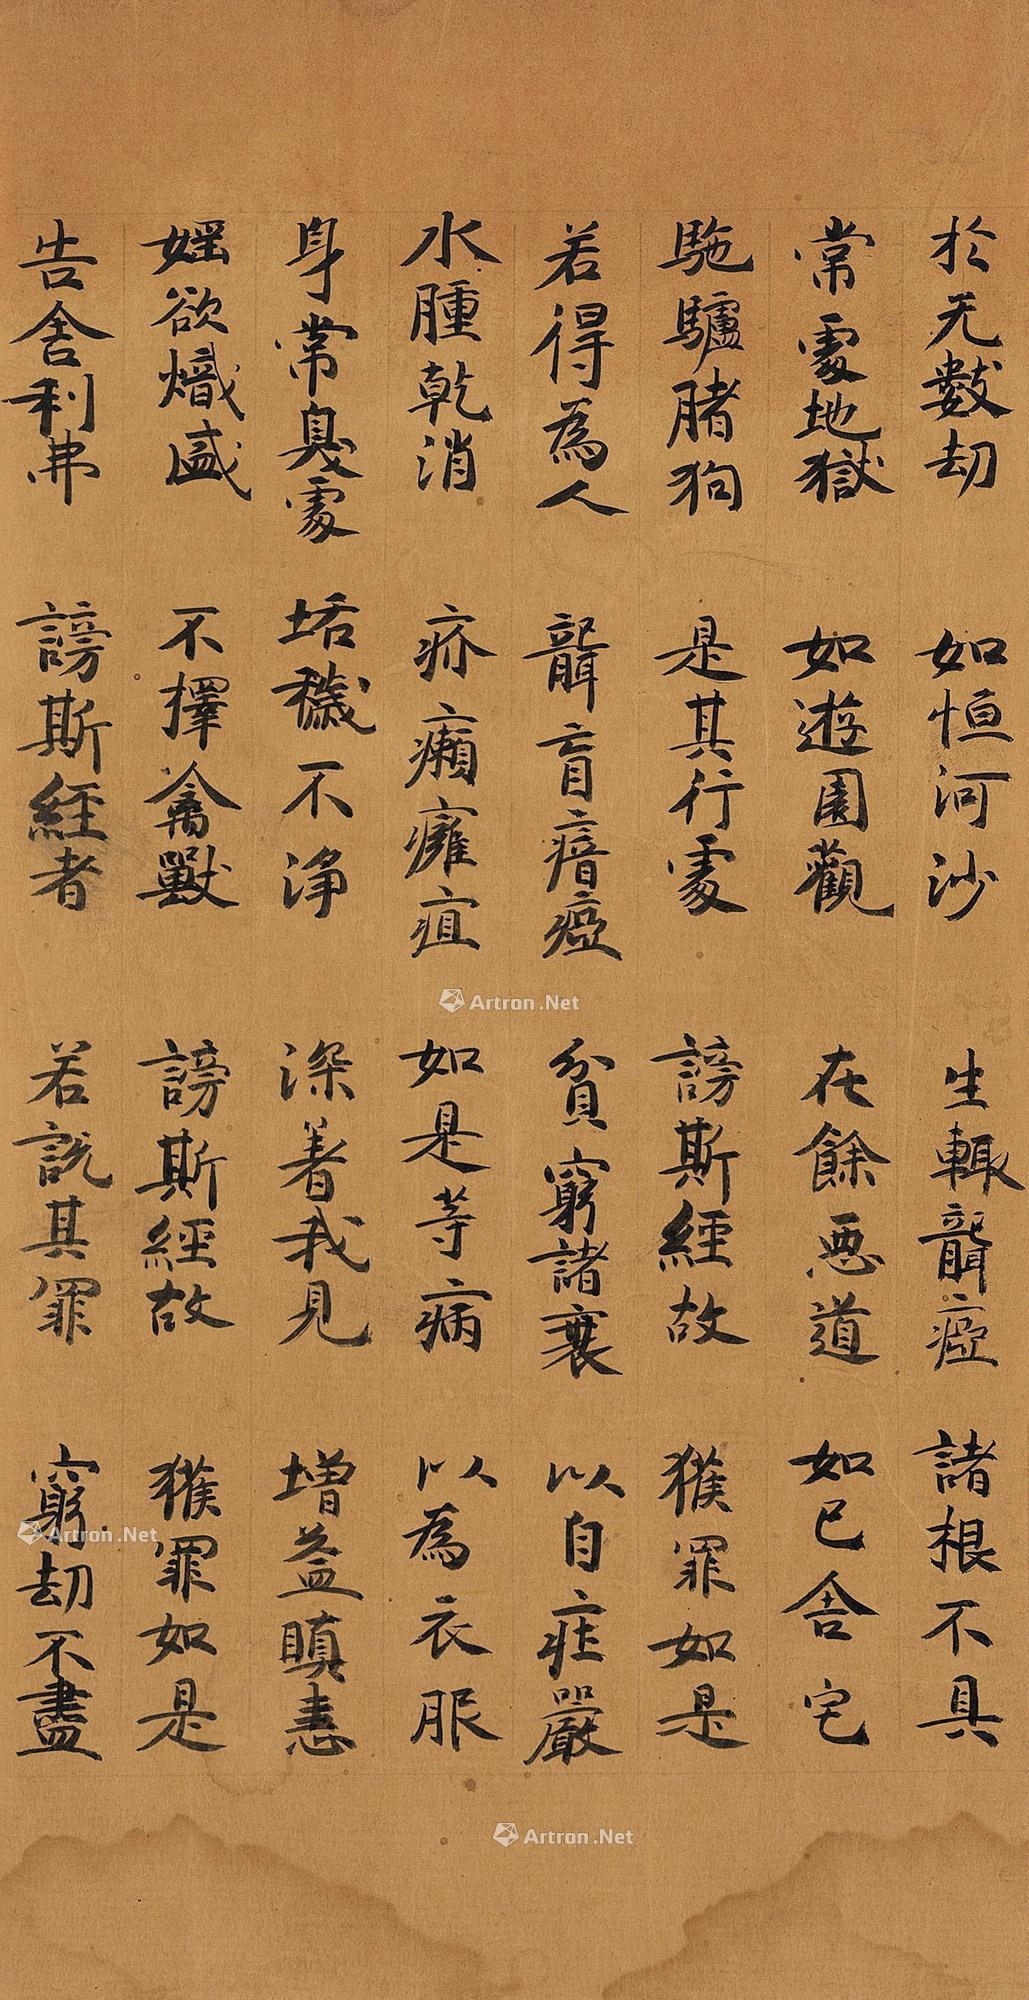 於无數劫 如恒河沙 生輙聾瘂 諸根不具
常處地獄 如遊園觀 在餘惡道 如己舍宅
駞驢猪狗 是其行處 謗斯經故 獲罪如是
若得為人 聾盲瘖瘂 貧窮諸衰 以自庄嚴
水腫乾消 疥癩癰疽 如是等病 以為衣服
身常臭處 垢穢不淨 深著我見 增益瞋恚
婬欲熾盛 不擇禽獸 謗斯經故 獲罪如是
告舍利弗 謗斯經者 若說其罪 窮劫不盡
Artron.Net
Artron.Net
Artron.Net